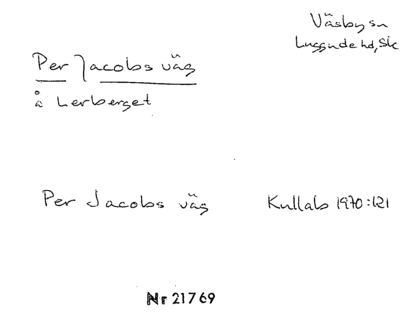 Väsby sn
Luggude hd, Sk
Per Jacobs väg
å Lerberget
Per Jacobs väg Kullab 1970:121
Nr 21769